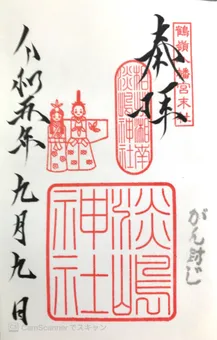 鶴嶺八幡宮末社
奉拝
淡嶋神社
令和五年九月九日
淡嶋
神社
がん封じ
CamScanner でスキャン